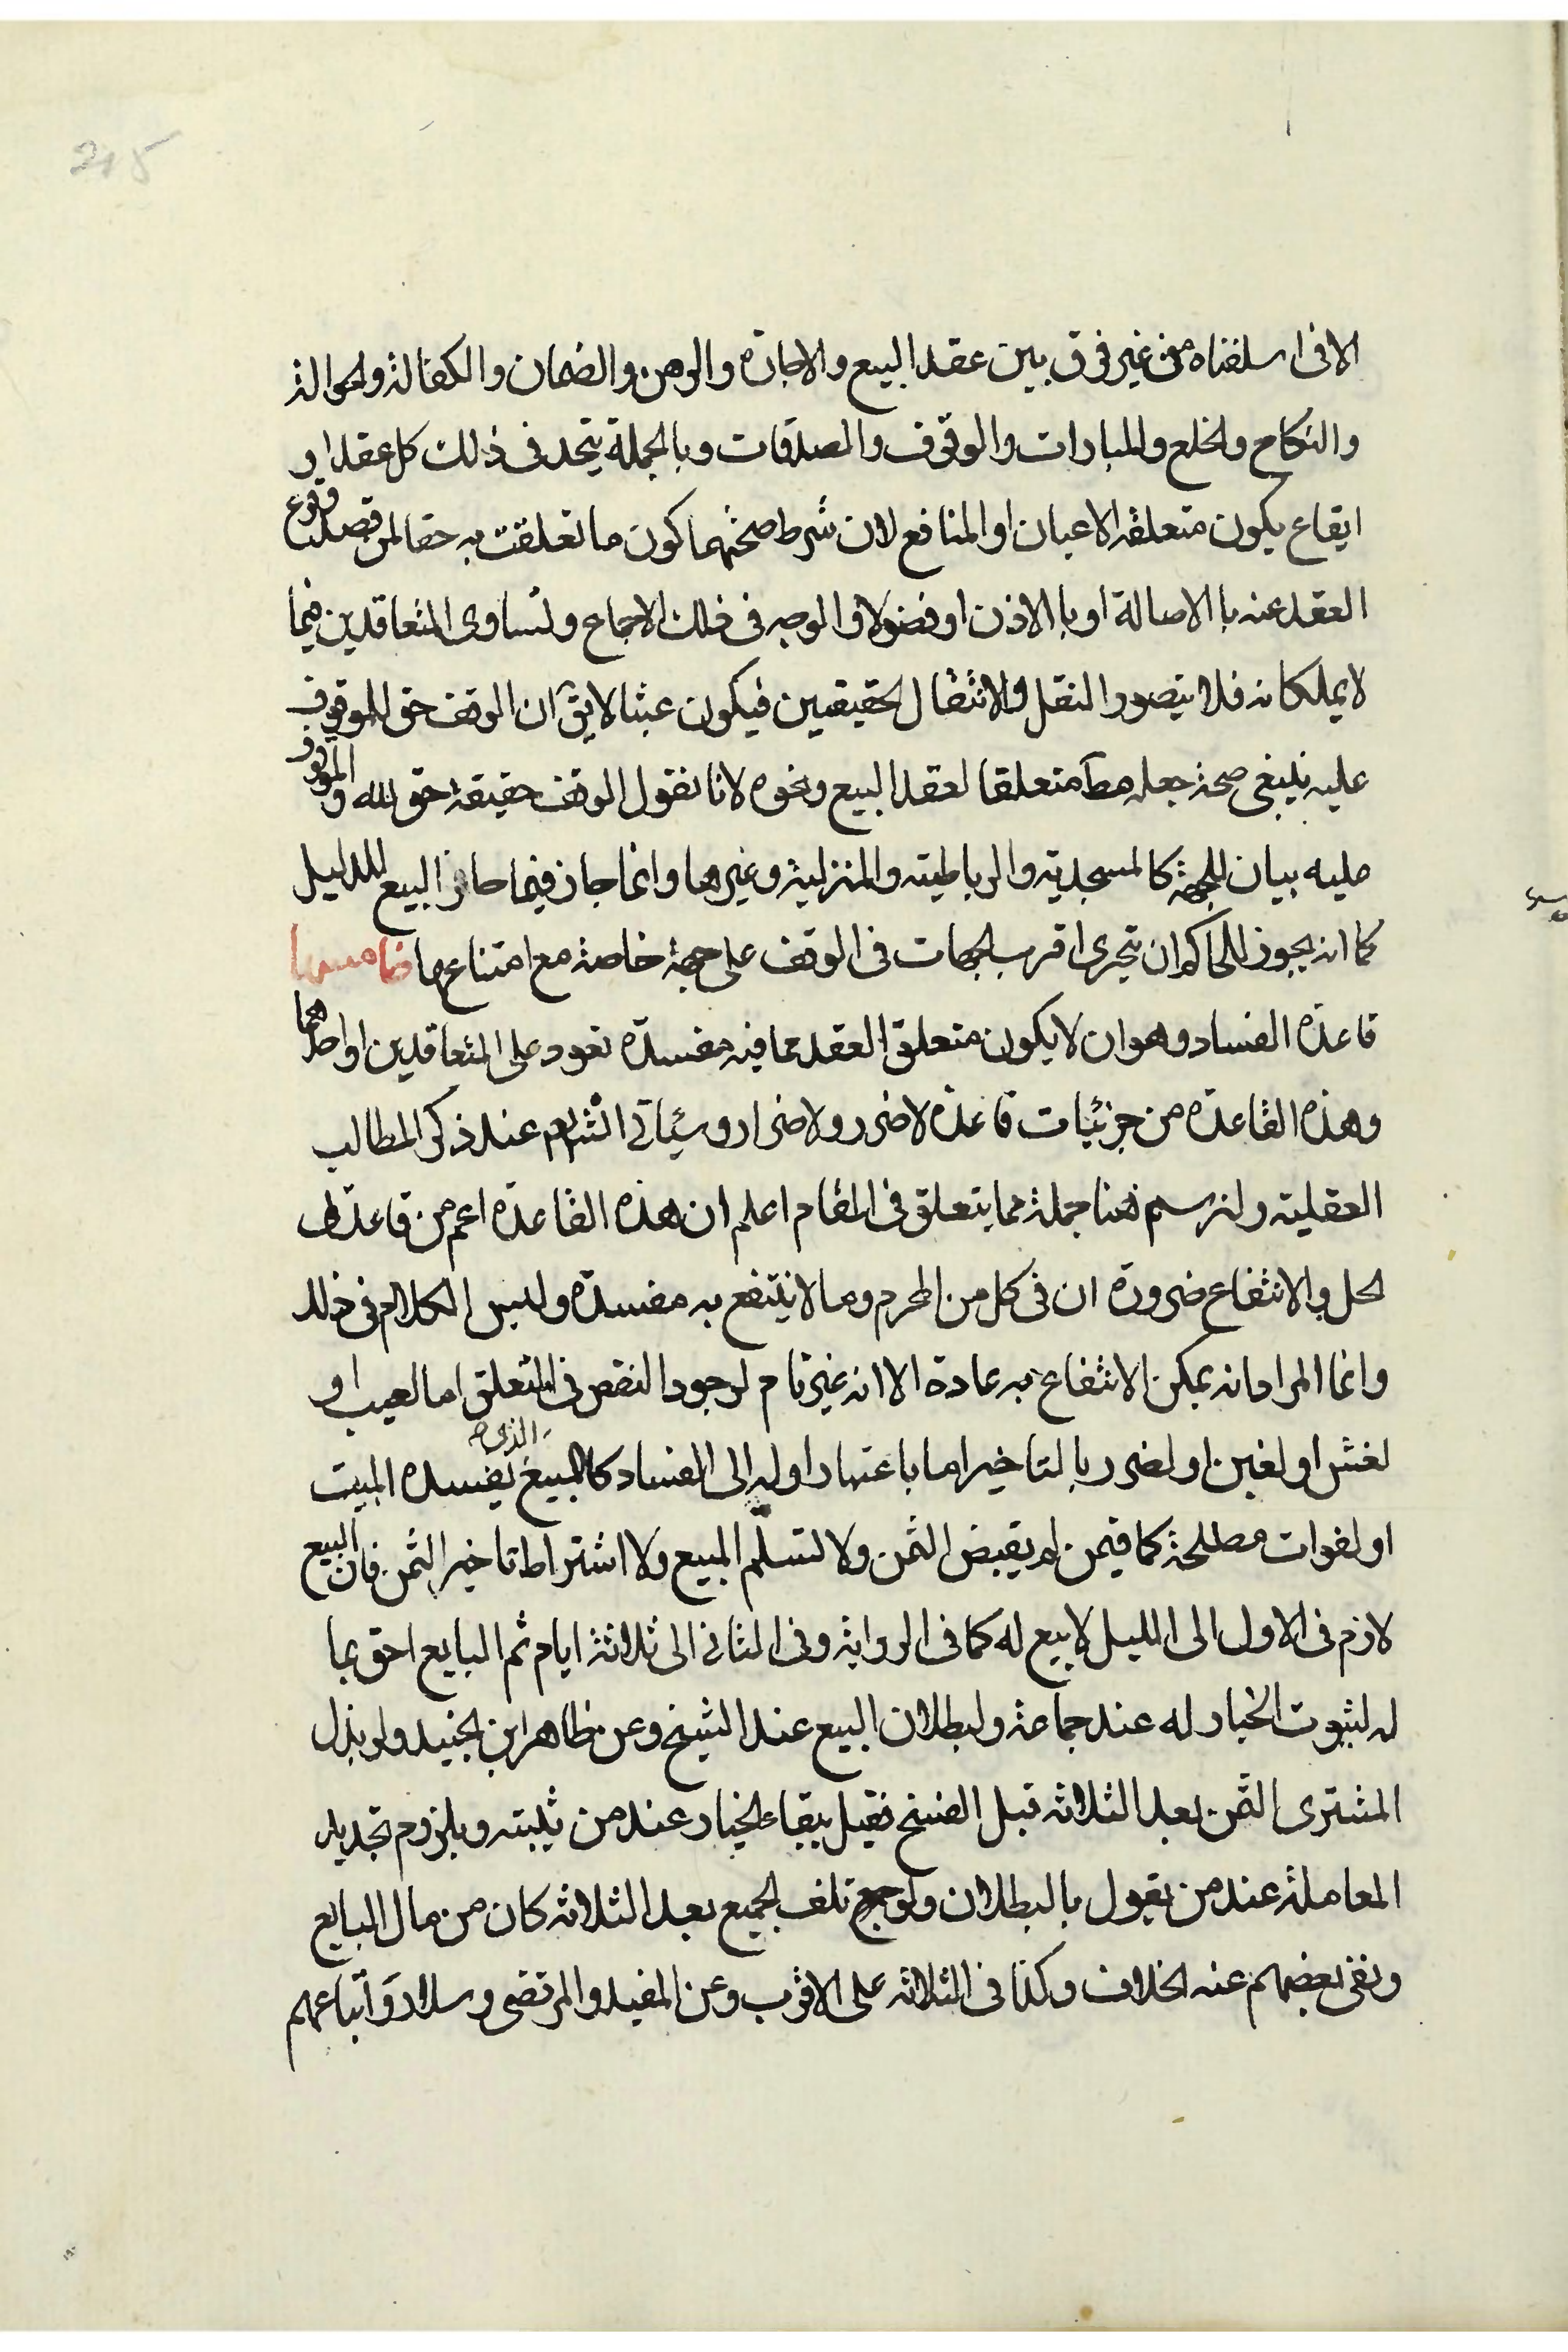 215
الا فى اسلفناه من غير فرق بين عقد البيع والاجارة والرهن والضمان والكفالة والحوالة
والنكاح والخلع والمبارات والوقوف والصدقات وبالجملة يتحد فى ذلك كل عقد او
ايقاع يكون متعلقه الاعيان او المنافع لان شرط صحتهما كون ما تعلقت به حقا لمن قصد وقوع
العقد عنه بالاصالة او بالاذن او فضولا والوجه فى ذلك الاجماع ولتساوى المتعاقدين فيما
لا يملكانه فلا يتصور النقل والانتقال الحقيقيين فيكون عبثا لا يق ان الوقف حق للموقوف
عليه ينبغى صحة جعله متعلقا لعقد البيع ونحوه لانا نقول الوقف حقيقة حق لله والموقوف
عليه بيان للجهة كالمسجدية والرباطية والمنزلية وغيرها وانما جاز فيما جاز البيع للدليل
كما انه يجوز للحاكم ان يتحرى اقرب الجهات فى الوقف على جهة خاصة مع امتناعها خامسها
قاعدة الفساد وهو ان لا يكون متعلق العقد مما فيه مفسدة تعود على المتعاقدين او احدهما
وهذه القاعدة من جزئيات قاعدة لا ضرر ولا ضرار وسيأتى انش عند ذكر المطالب
العقلية ولنرسم هنا جملة مما يتعلق فى المقام اعلم ان هذه القاعدة اعم من قاعدتى
الحل والانتفاع ضرورة ان فى كل من المحرم وما لا ينتفع به مفسدة وليس الكلام فى ذلك
وانما المراد انه يمكن الانتفاع به عادة الا انه غير تام لوجود النقص فى المتعلق اما لعيب او
لغش او لغبن او لضرر بالتاخير اما باعتبار اوله الى الفساد كالمبيع الذى يفسده المبيت
او لفوات مصلحة كما فيمن لم يقبض الثمن ولا لتسلم المبيع ولا اشتراط تاخير الثمن فان البيع
لازم فى الاول الى الليل لا بيع له كما فى الرواية وفى الثانى الى ثلاثة ايام ثم البايع احق بما
له لثبوت الخيار له عند جماعة ولبطلان البيع عند الشيخ وعن ظاهر ابن الجنيد ولو بذل
المشترى الثمن بعد الثلاثه قبل الفسخ فقيل ببقاء الخيار عند من يثبته وبلزوم تجديد
المعاملة عند من يقول بالبطلان ولو تلف الجميع بعد الثلاثه كان من مال البايع
ونفى بعضهم عنه الخلاف وكذا فى الثلاثه على الاقرب وعن المفيد والمرتضى وسلار واتباعهم